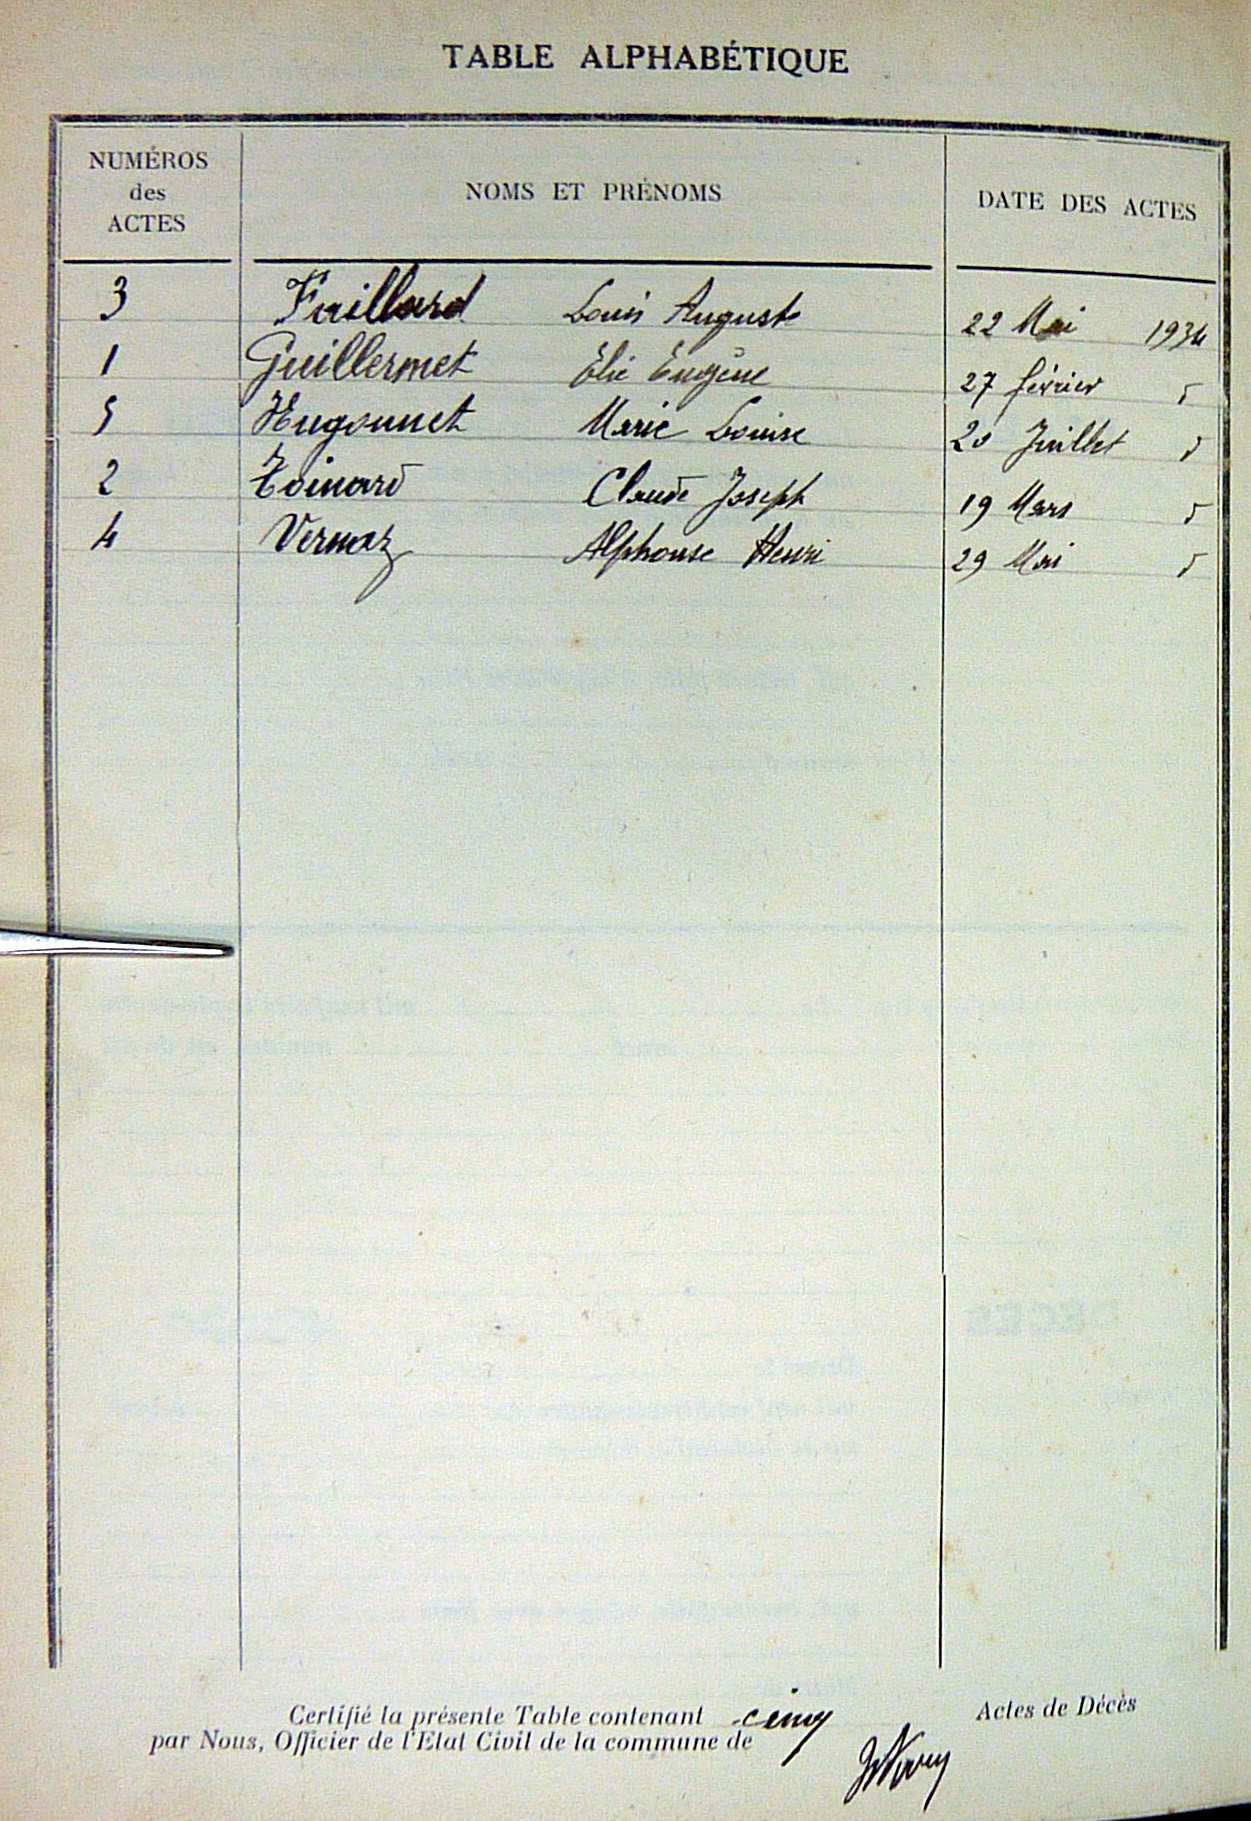 TABLE ALPHABÉTIQUE
NUMÉROS
des
ACTES
NOMS ET PRÉNOMS
DATE DES ACTES
3 Faillard Louis Auguste 22 Mai 1934
1 Guillermet Élie Eugène 27 février
5 Hugonnet Marie Louise 20 Juillet
2 Toinard Claude Joseph 19 Mars
4 Vernaz Alphonse Henri 29 Mai
Certifié la présente Table contenant cinq Actes de Décès
par Nous, Officier de l'Etat Civil de la commune de